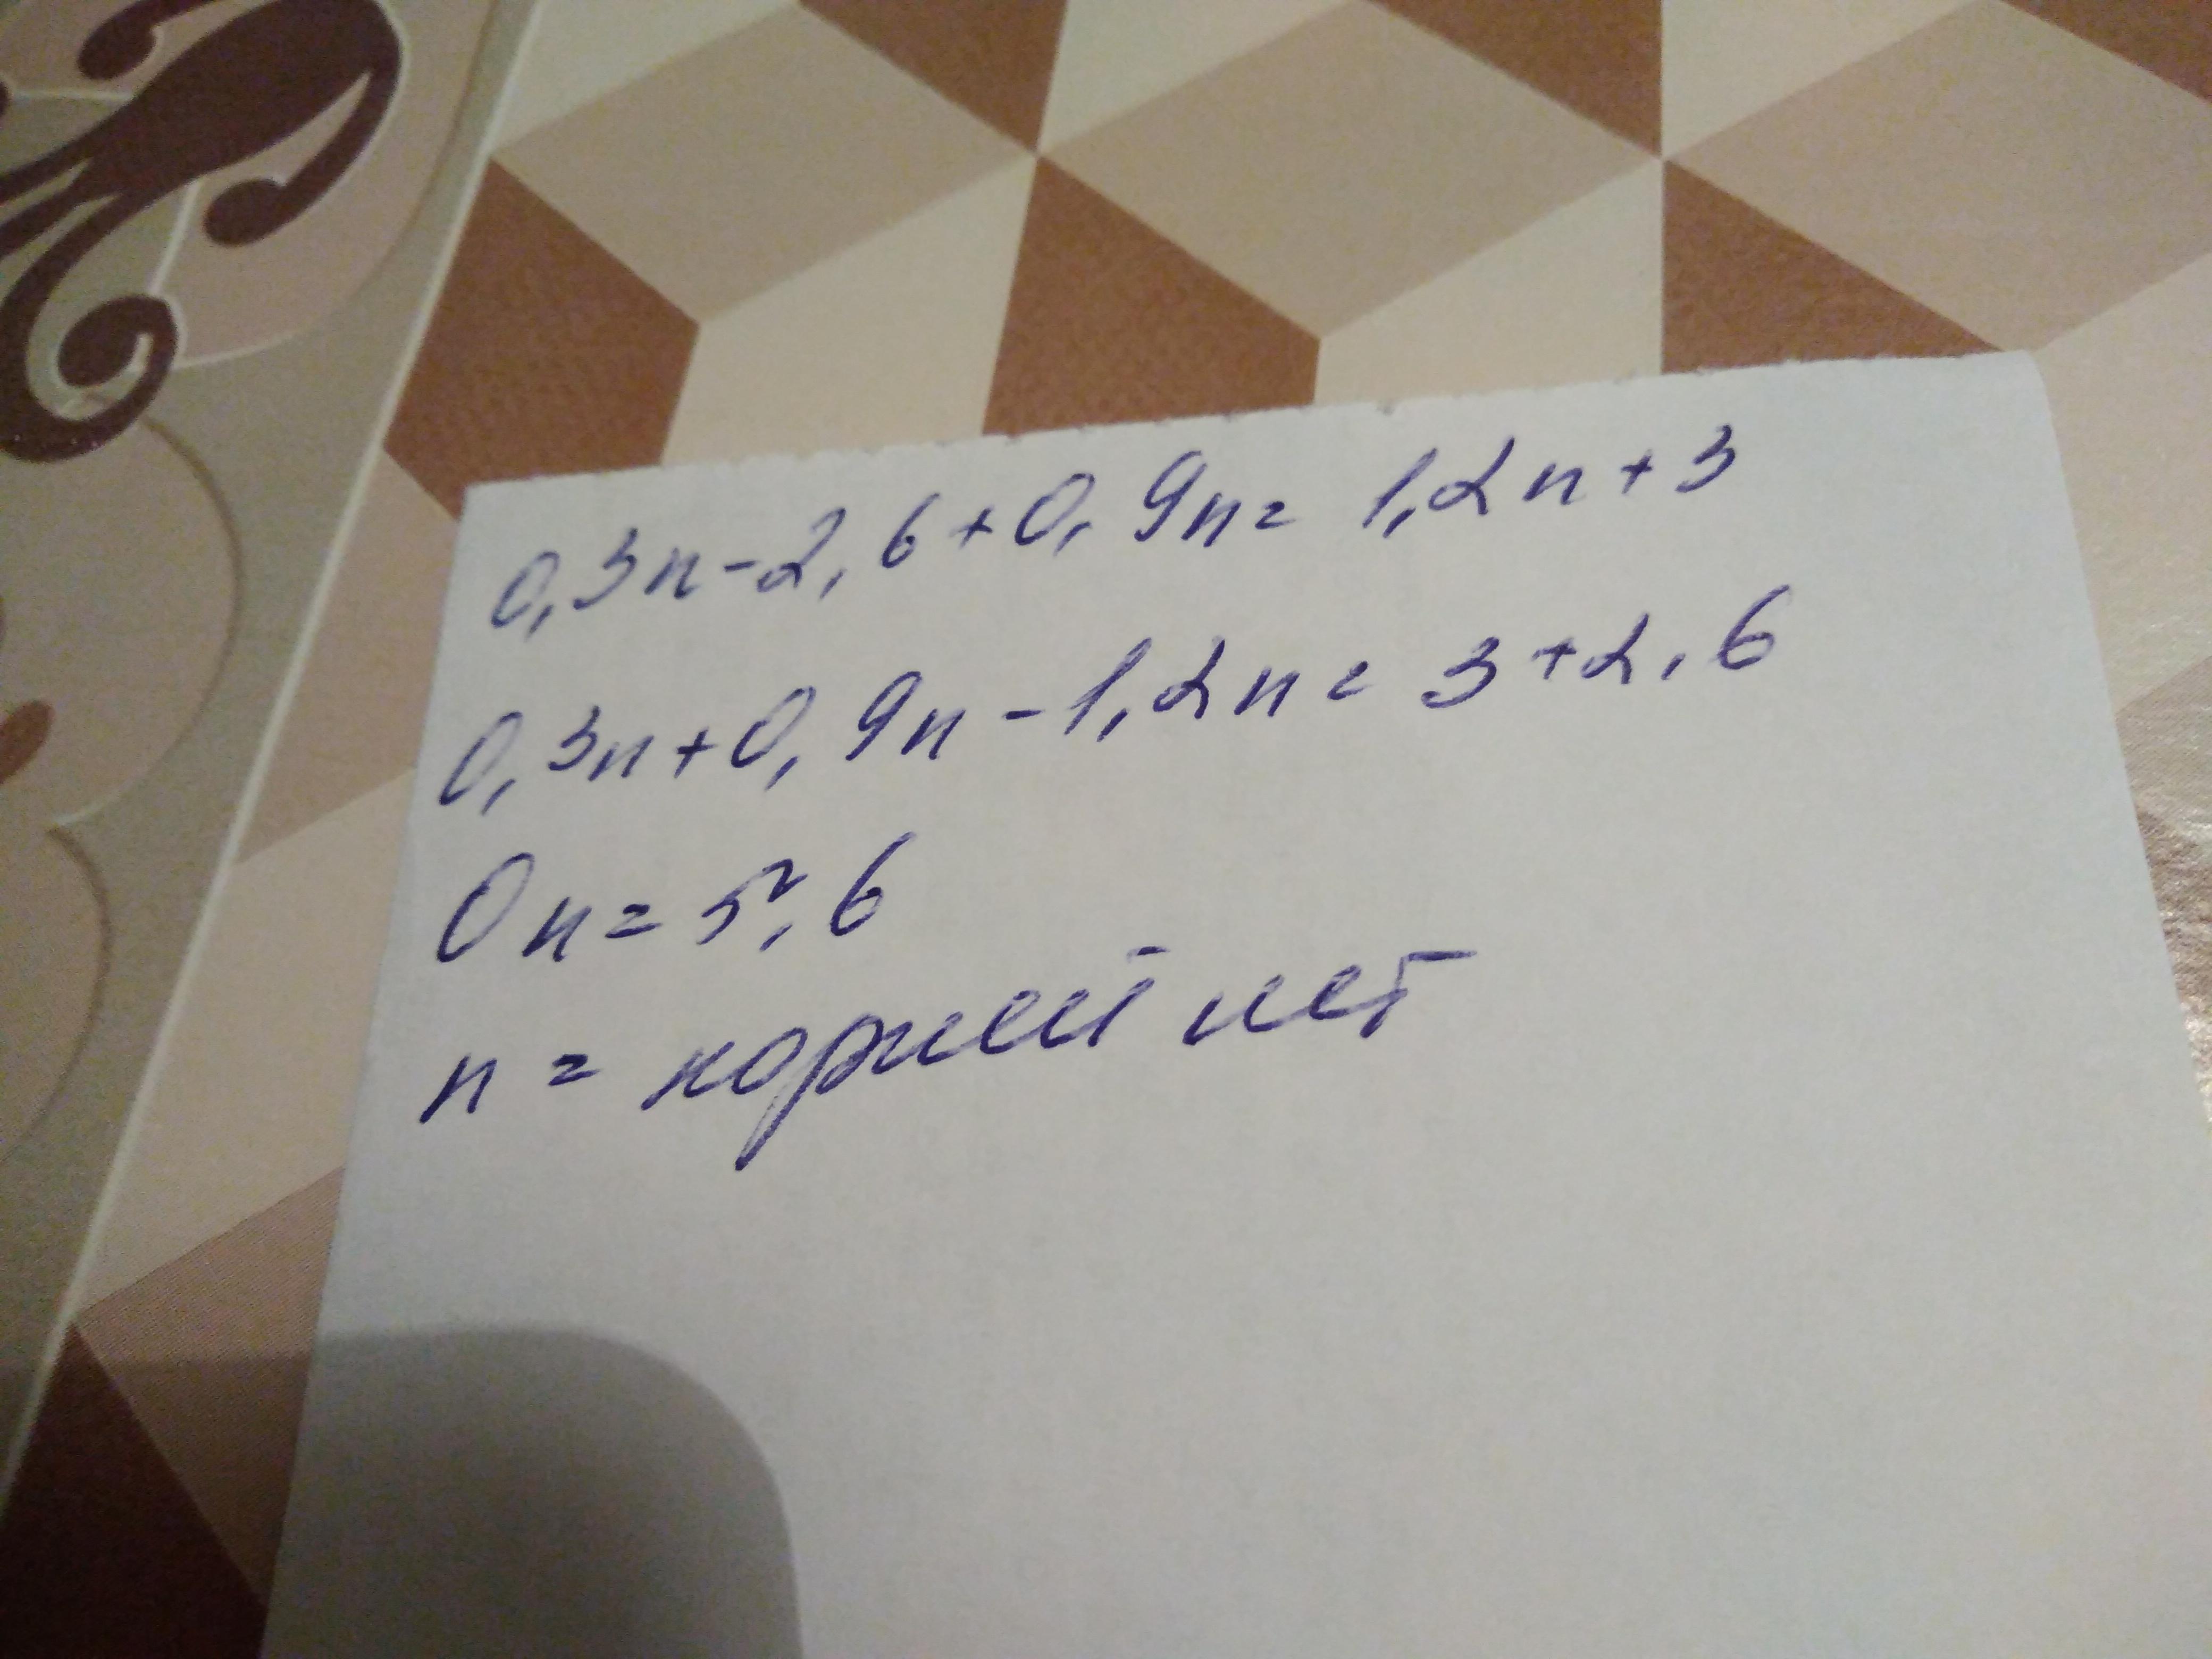 0,3n-2,6+0,9n=1,2n+3
0,3n+0,9n-1,2n=3+2,6
0n=5,6
n=корней нет